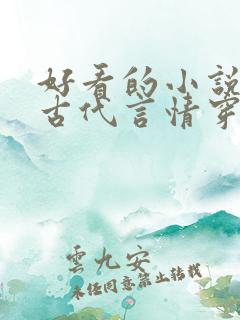 好看的小說
古代言情穿
雲九安
未經同意禁止轉載